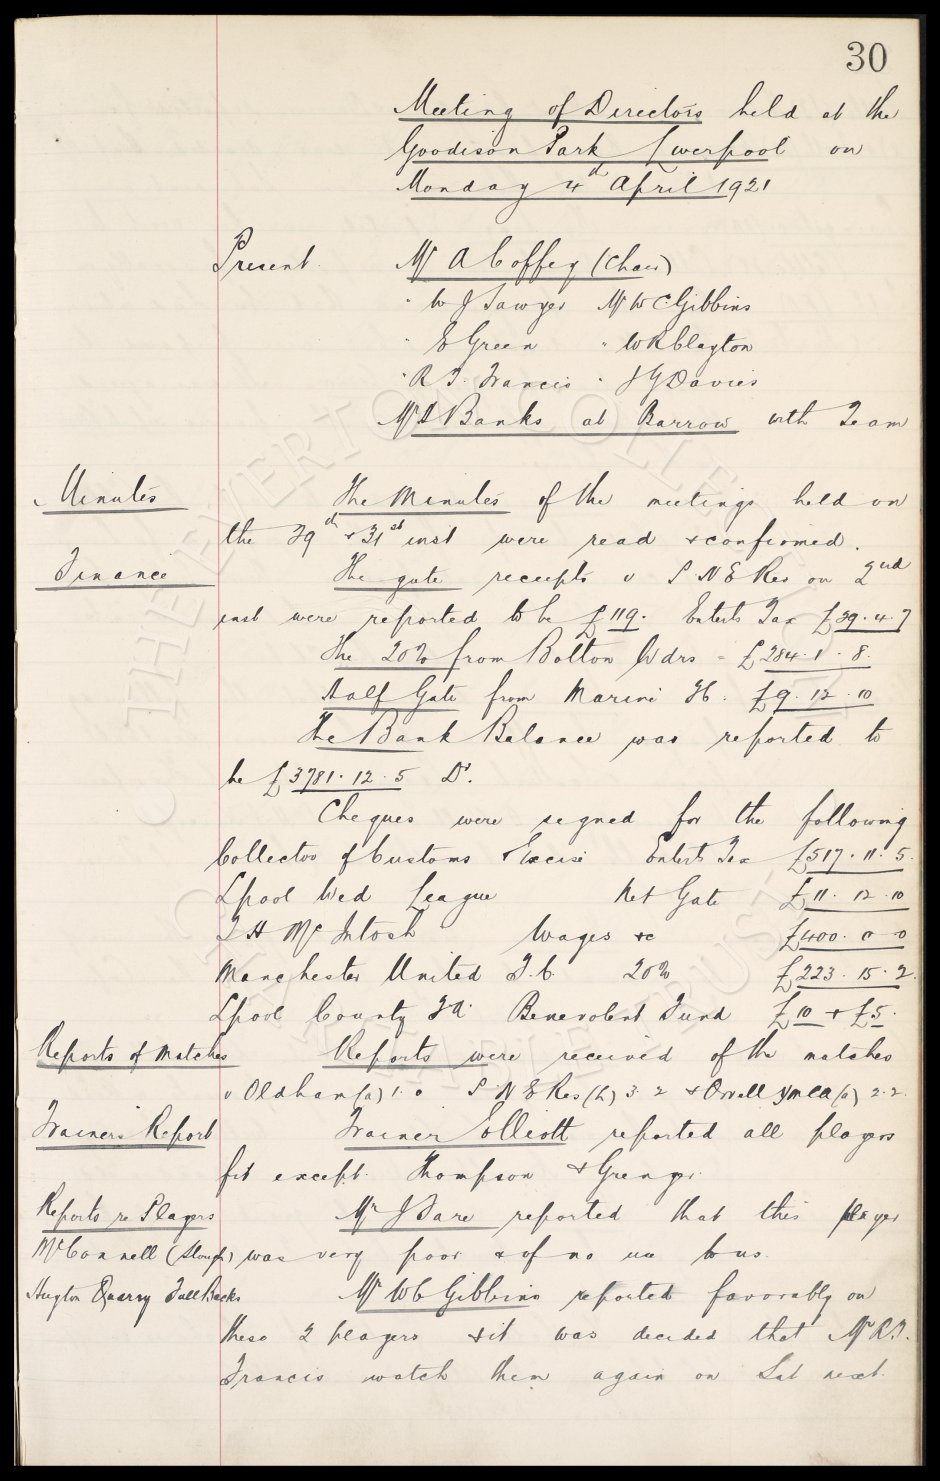 30
Meeting of Directors held at the
Goodison Park Liverpool on
Monday 4th April 1921
Present Mr A Coffey (Chair)
" W J Sawyer Mr W C Gibbins
" E Green " W R Clayton
" R T. Francis " J G Davies
Mr D Banks at Barrow with Team
Minutes The Minutes of the meetings held on
the 29th & 31st inst were read & confirmed.
Finance The gate receipts v S N E Res on 2nd
inst were reported to be £119. Enterts Tax £39.4.7
The 20% from Bolton Wdrs - £284.1.8.
Half Gate from Marine Fc. £9.12.10
The Bank Balance was reported to
be £3781.12.5 Dr.
Cheques were signed for the following
Collector of Customs & Excise Enterts Tax £517.11.5.
Lpool Wed League Net Gate £11.12.10
T H McIntosh Wages &c £400.0-0
Manchester United F.C. 20% £223.15.2.
Lpool County FA. Benevolent Fund £10 + £5.
Reports of Matches Reports were received of the matches
v Oldham (a) 1.0 S N E Res (h) 3.2 & Orrell YMCA (a) 2.2.
Trainers Report Trainer Elliott reported all players
fit except Thompson & Grenyer.
Reports re Players Mr J Bare reported that this player
McConnell (Slough) was very poor & of no use to us.
Huyton Quarry Full Backs Mr W C Gibbins reported favorably on
these 2 players & it was decided that Mr R.T.
Francis watch them again on Sat next.